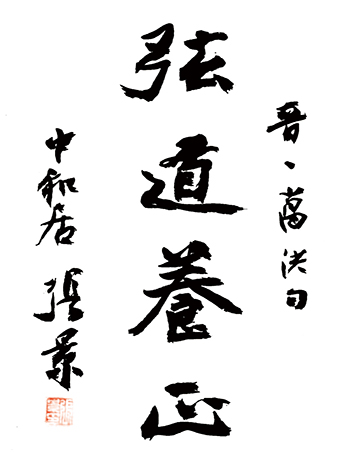 晋、葛洪句
弘道養正
中和居 張景